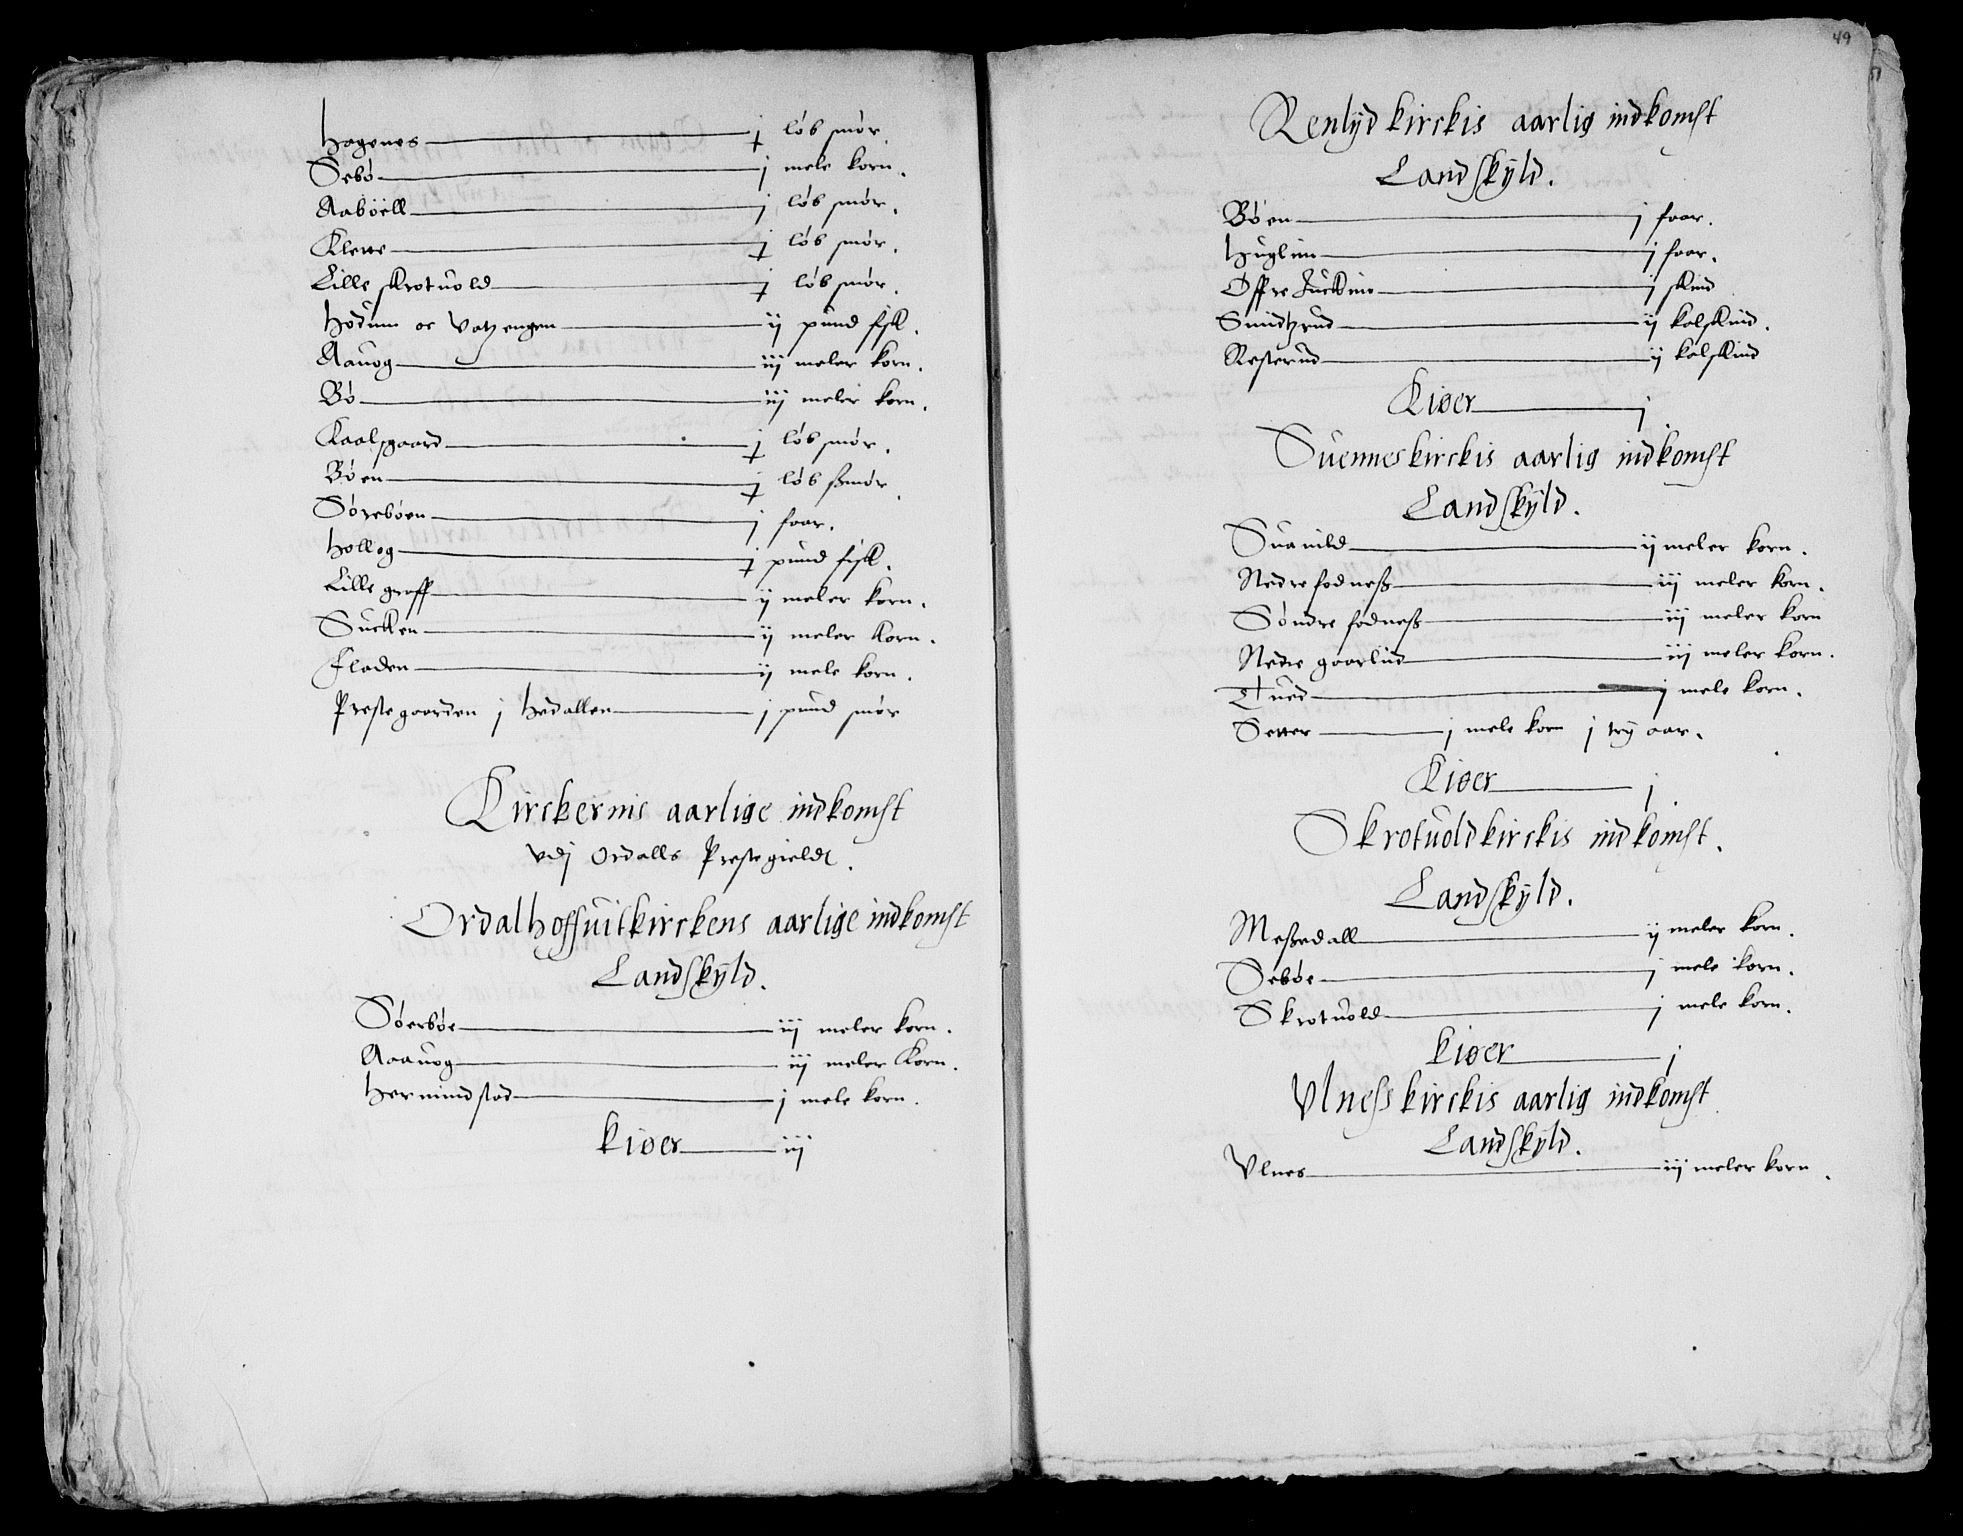 Hagenes j løb smør.
Sebø j mele korn.
Aabøell j løb smør.
Klette j løb smør.
Lille skrotuold j løb smør.
Hødnn oc Vatzengen ij pund fisk.
Aauog iij meler korn.
Bø iij meler korn.
Kaalsgaard j løb smør.
Bøen j løb ßmør.
Sørebøen j faar.
Hollog j pund fisk.
Lille groff ij meler korn.
Sucken ij meler korn.
Fladen ij mele korn.
Prestegaarden j Hedallen j pund smør
Kirckernis aarlige indkomst
vdj Ordalls Prestegieldt.
Ordalhoffuitkirckens aarlige indkomst
Landskÿld.
Søerbøe iij meler korn.
Aaauog iij meler korn.
Hermindstad j mele korn.
kiøer iij
49
Renlÿd kirckis aarlig indkomst
Landskÿld.
Bøen j faar.
Huglin j faar.
Offre Juckine j skind
Smidtzrud ij kalskind.
Resterud ij kalskind
Kiøer j
Suenneskirckis aarlig indkomst
Landskÿld.
Suauild ij meler korn.
Nedre fodneß iij meler korn.
Søndre fodneß iij meler korn
Nedre gaarlud iij meler korn.
Tued j mele korn.
Setter j mele korn j trij aar.
Kiøer j
Skrotuoldkirckis indkomst.
Landskÿld.
Meßedall ij meler korn.
Sebøe j mele korn.
Skrotuold j mele korn.
kiøer j
Vlneßkirckis aarlig indkomst
Landskÿld.
Vlnes iij meler korn.